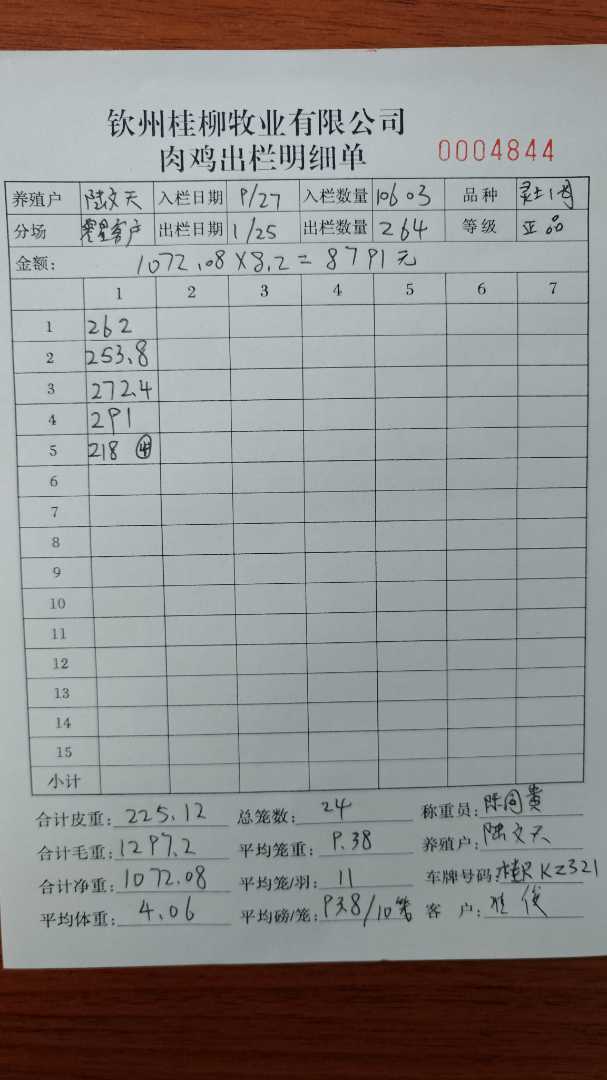 钦州桂柳牧业有限公司
肉鸡出栏明细单 0004844
养殖户 陆文天 入栏日期 9/27 入栏数量 10603 品种 灵土
分场 零星客户 出栏日期 1/25 出栏数量 264 等级 正品
金额: 1072.08×8.2=8791元
1 2 3 4 5 6 7
1 262
2 253.8
3 272.4
4 291
5 218 ④
6
7
8
9
10
11
12
13
14
15
小计
合计皮重: 225.12 总笼数: 24 称重员: 陈同贵
合计毛重: 1297.2 平均笼重: 9.38 养殖户: 陆文天
合计净重: 1072.08 平均笼/羽: 11 车牌号码: 桂R KZ321
平均体重: 4.06 平均磅/笼: 93.8/10笼 客 户: